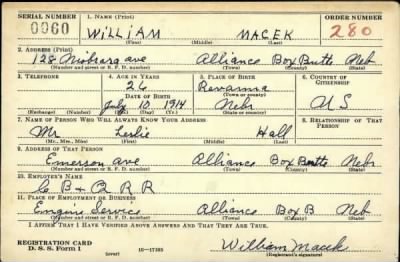 SERIAL NUMBER 1. NAME (Print) ORDER NUMBER
0060 WILLIAM MACEK 280
(First) (Middle) (Last)
2. ADDRESS (Print)
128 ave Alliance Box Butte Neb
(Number and street or R. F. D. number) (Town) (County) (State)
3. TELEPHONE 4. AGE IN YEARS 5. PLACE OF BIRTH 6. COUNTRY OF CITIZENSHIP
26 Ravanna
DATE OF BIRTH (Town or county)
July 10 1914 Nebr U S
(Exchange) (Number) (Mo.) (Day) (Yr.) (State or country)
7. NAME OF PERSON WHO WILL ALWAYS KNOW YOUR ADDRESS 8. RELATIONSHIP OF THAT PERSON
Mr Leslie Hall
(Mr., Mrs., Miss) (First) (Middle) (Last)
9. ADDRESS OF THAT PERSON
Emerson ave Alliance Box Butte Nebr
(Number and street or R. F. D. number) (Town) (County) (State)
10. EMPLOYER'S NAME
C B & Q R R
11. PLACE OF EMPLOYMENT OR BUSINESS
Engine Service Alliance Box B Neb
(Number and street or R. F. D. number) (Town) (County) (State)
I AFFIRM THAT I HAVE VERIFIED ABOVE ANSWERS AND THAT THEY ARE TRUE.
REGISTRATION CARD
D. S. S. Form 1 (over) 16—17105 William Macek
(Registrant's signature)